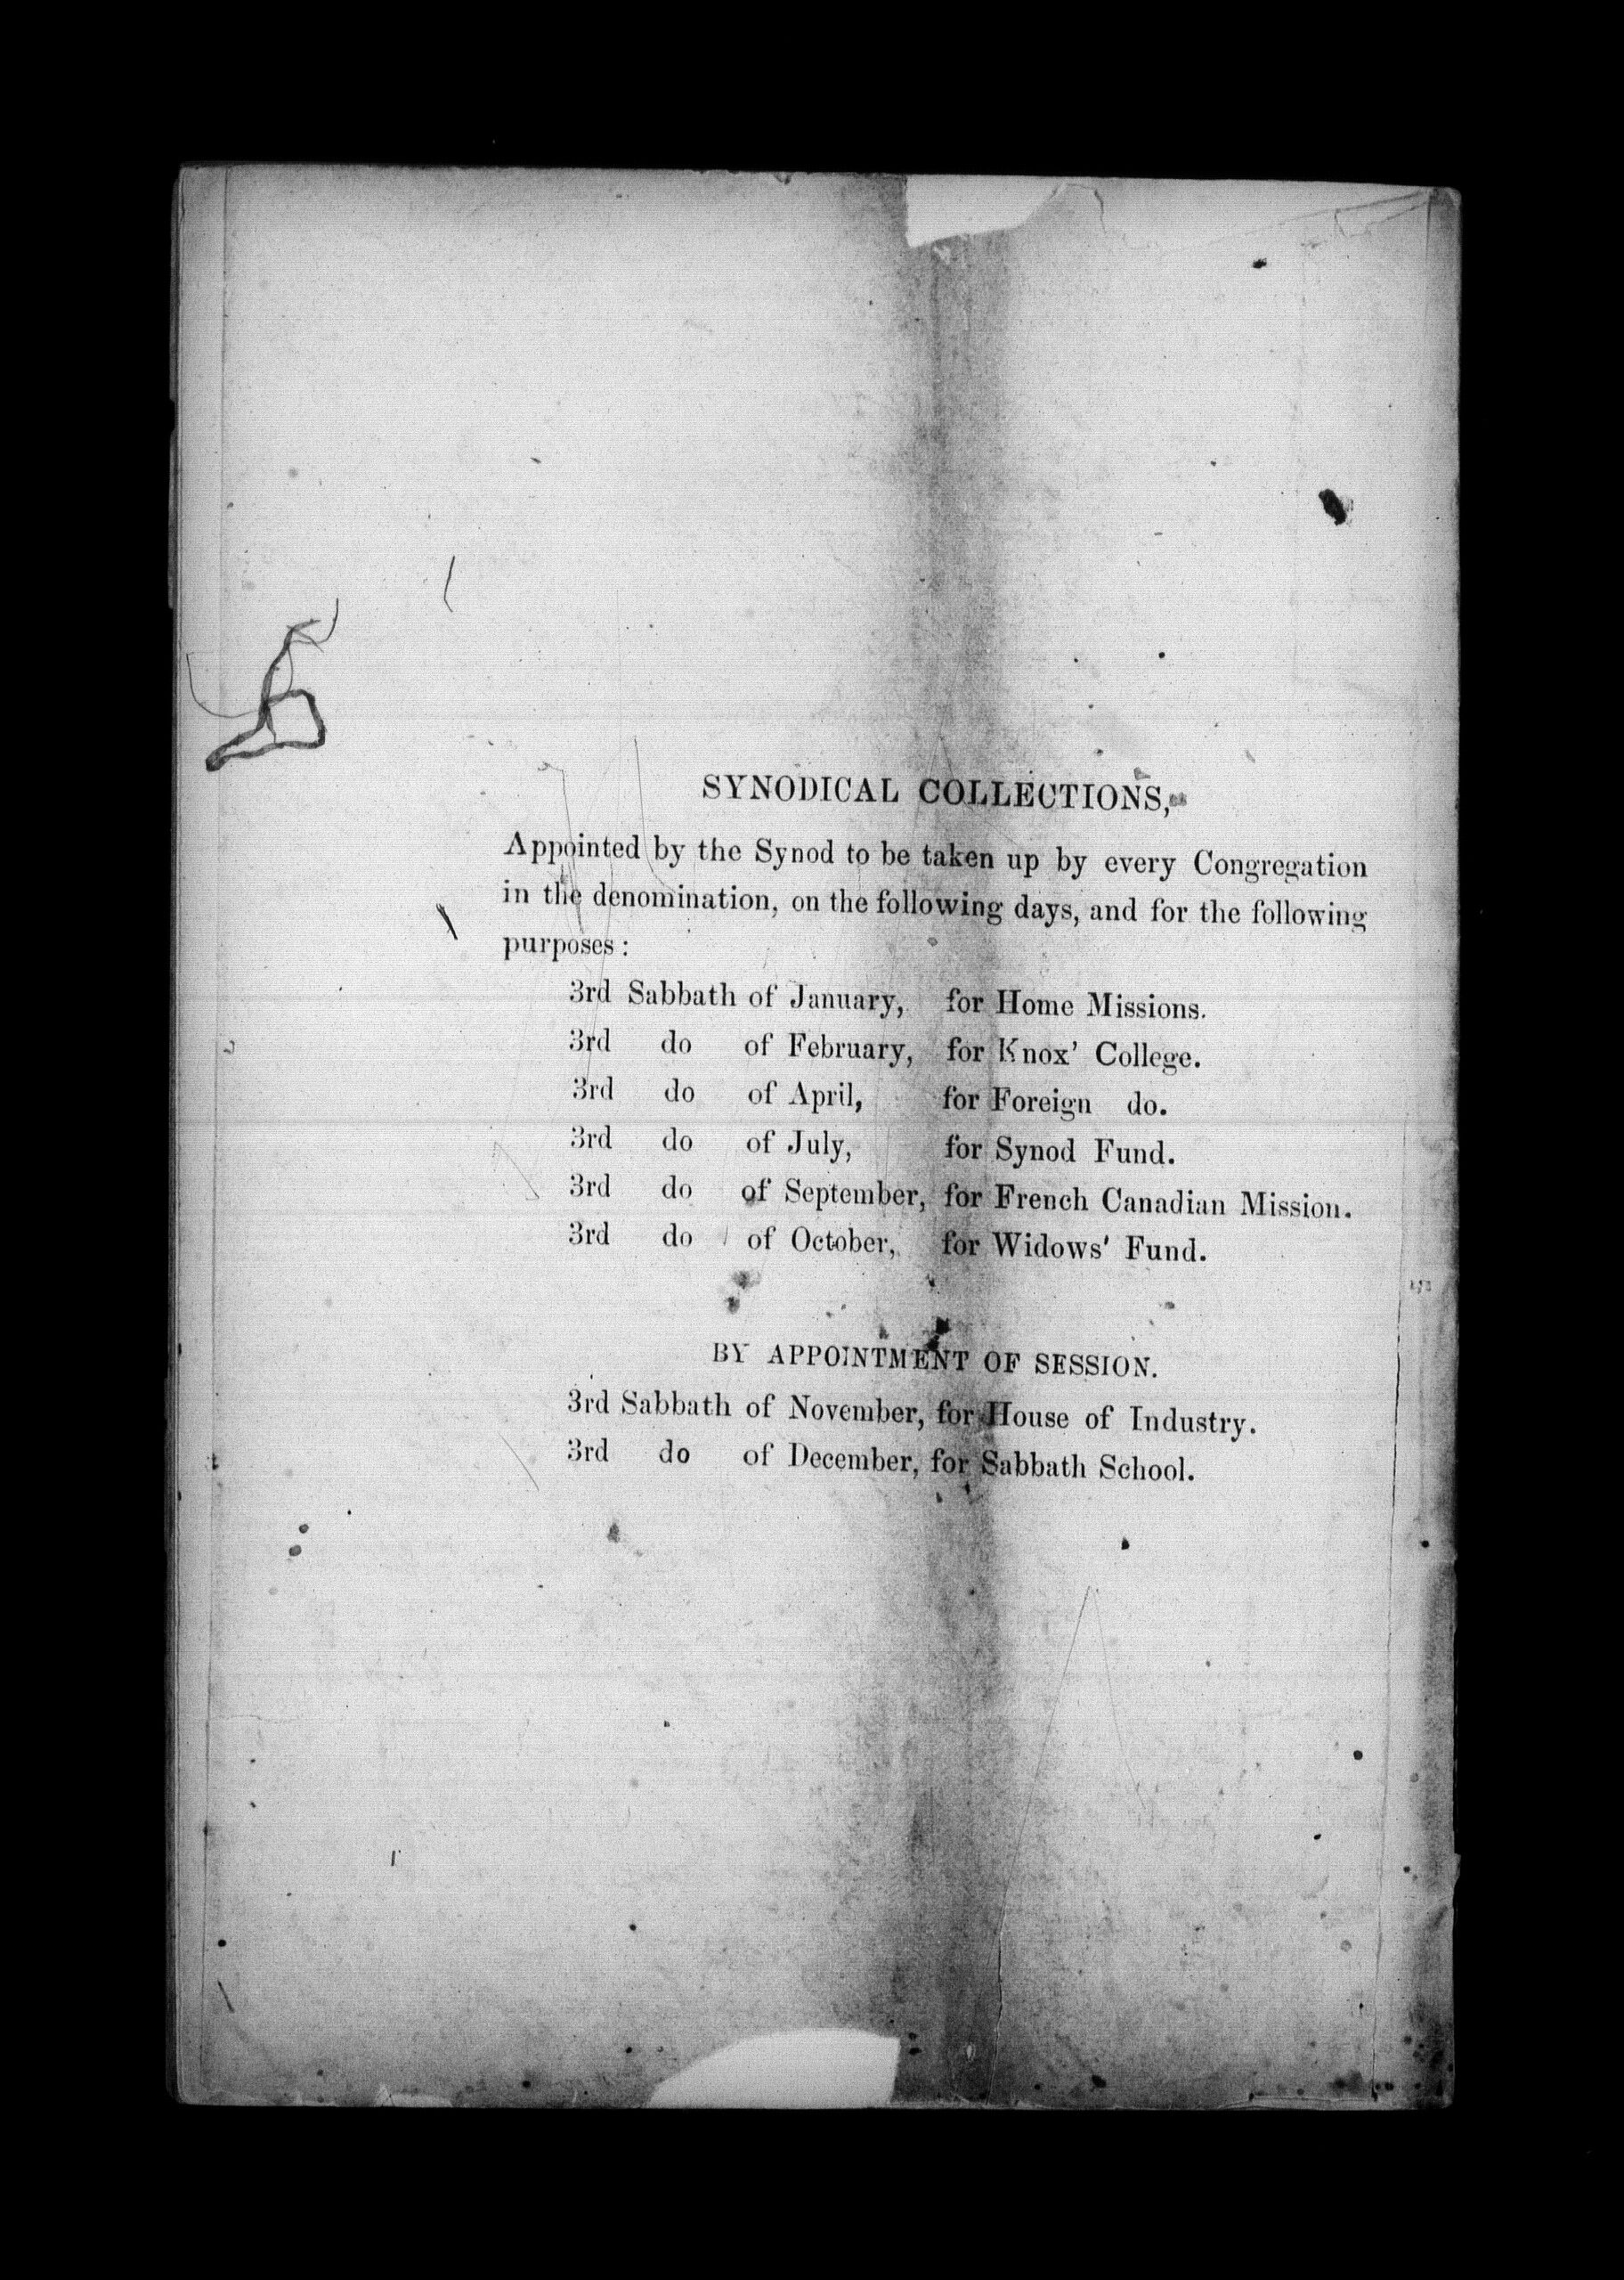 SYNODICAL COLLECTIONS,
Appointed by the Synod to be taken up by every Congregation
in the denomination, on the following days, and for the following
purposes:
3rd Sabbath of January, for Home Missions.
3rd do of February, for Knox' College.
3rd do of April, for Foreign do.
3rd do of July, for Synod Fund.
3rd do of September, for French Canadian Mission.
3rd do of October, for Widows' Fund.
BY APPOINTMENT OF SESSION.
3rd Sabbath of November, for House of Industry.
3rd do of December, for Sabbath School.